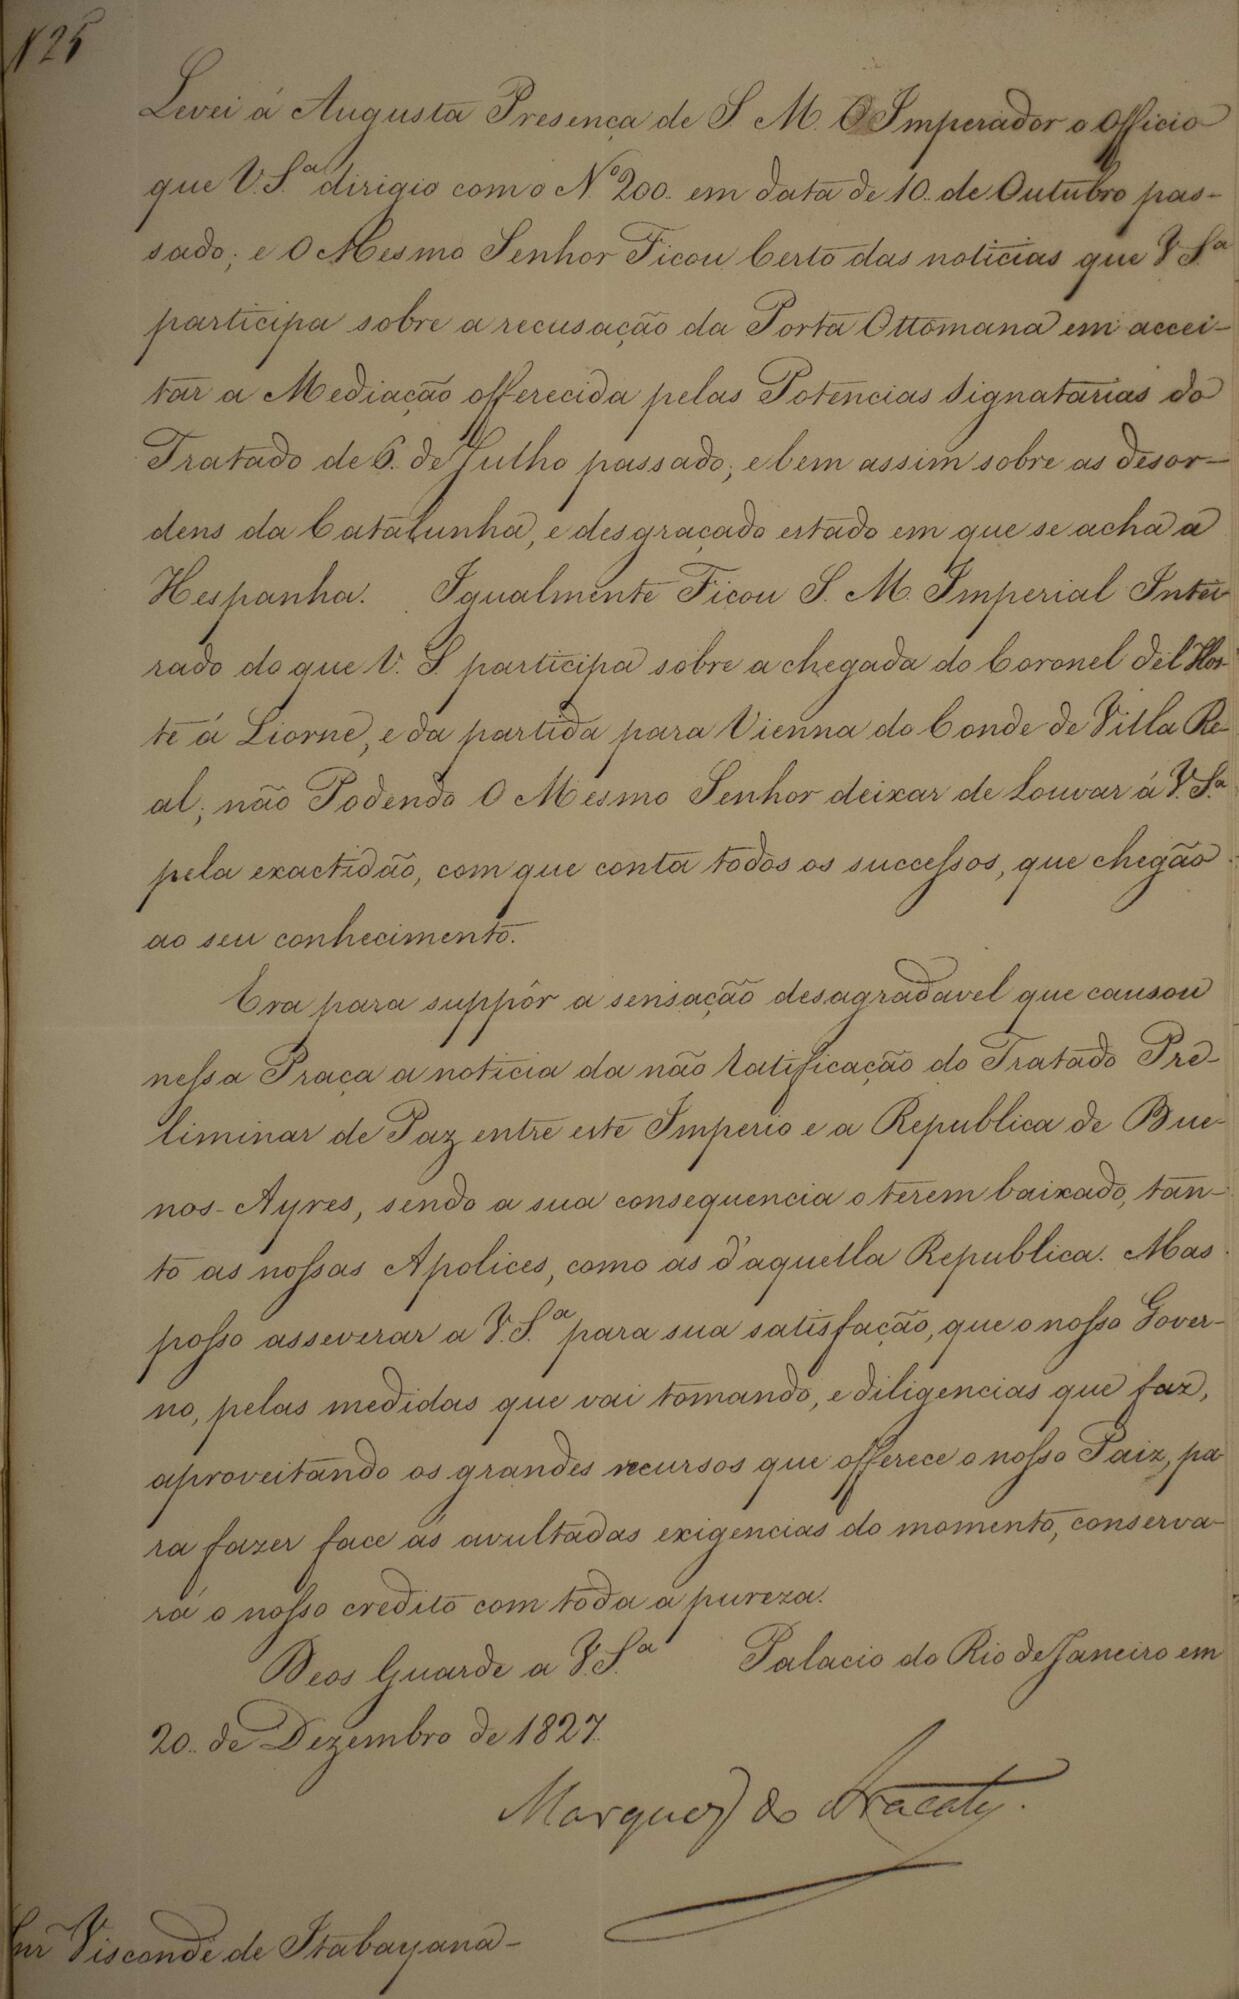 N 25
Levei á Augusta Presença de S. M. O Imperador o Officio
que V. S.ª dirigio com o Nº 200. em data de 10. de Outubro pas-
sado; e O Mesmo Senhor Ficou Certo das noticias que V. S.ª
participa sobre a recusação da Porta Ottomana em accei-
tar a Mediação offerecida pelas Potencias Signatarias do
Tratado de 6. de Julho passado; e bem assim sobre as desor-
dens da Catalunha, e desgraçado estado em que se acha a
Hespanha. Igualmente Ficou S. M. Imperial Intei-
rado do que V. S. participa sobre a chegada do Coronel del Hos-
te á Liorne, e da partida para Vienna do Conde de Villa Re-
al; não Podendo O Mesmo Senhor deixar de Louvar á V. S.ª
pela exactidão, com que conta todos os successos, que chegão
ao seu conhecimento.
Era para suppôr a sensação desagradavel que causou
nessa Praça a noticia da não ratificação do Tratado Pre-
liminar de Paz entre este Imperio e a Republica de Bue-
nos-Ayres, sendo a sua consequencia o terem baixado, tan-
to as nossas Apolices, como as d'aquella Republica. Mas
posso asseverar a V. S.ª para sua satisfação, que o nosso Gover-
no, pelas medidas que vai tomando, e diligencias que faz,
aproveitando os grandes recursos que offerece o nosso Paiz, pa-
ra fazer face ás avultadas exigencias do momento, conserva-
rá o nosso credito com toda a pureza.
Deos Guarde a V. S.ª Palacio do Rio de Janeiro em
20. de Dezembro de 1827.
Marquez do Aracaty.
Snr Visconde de Itabayana-